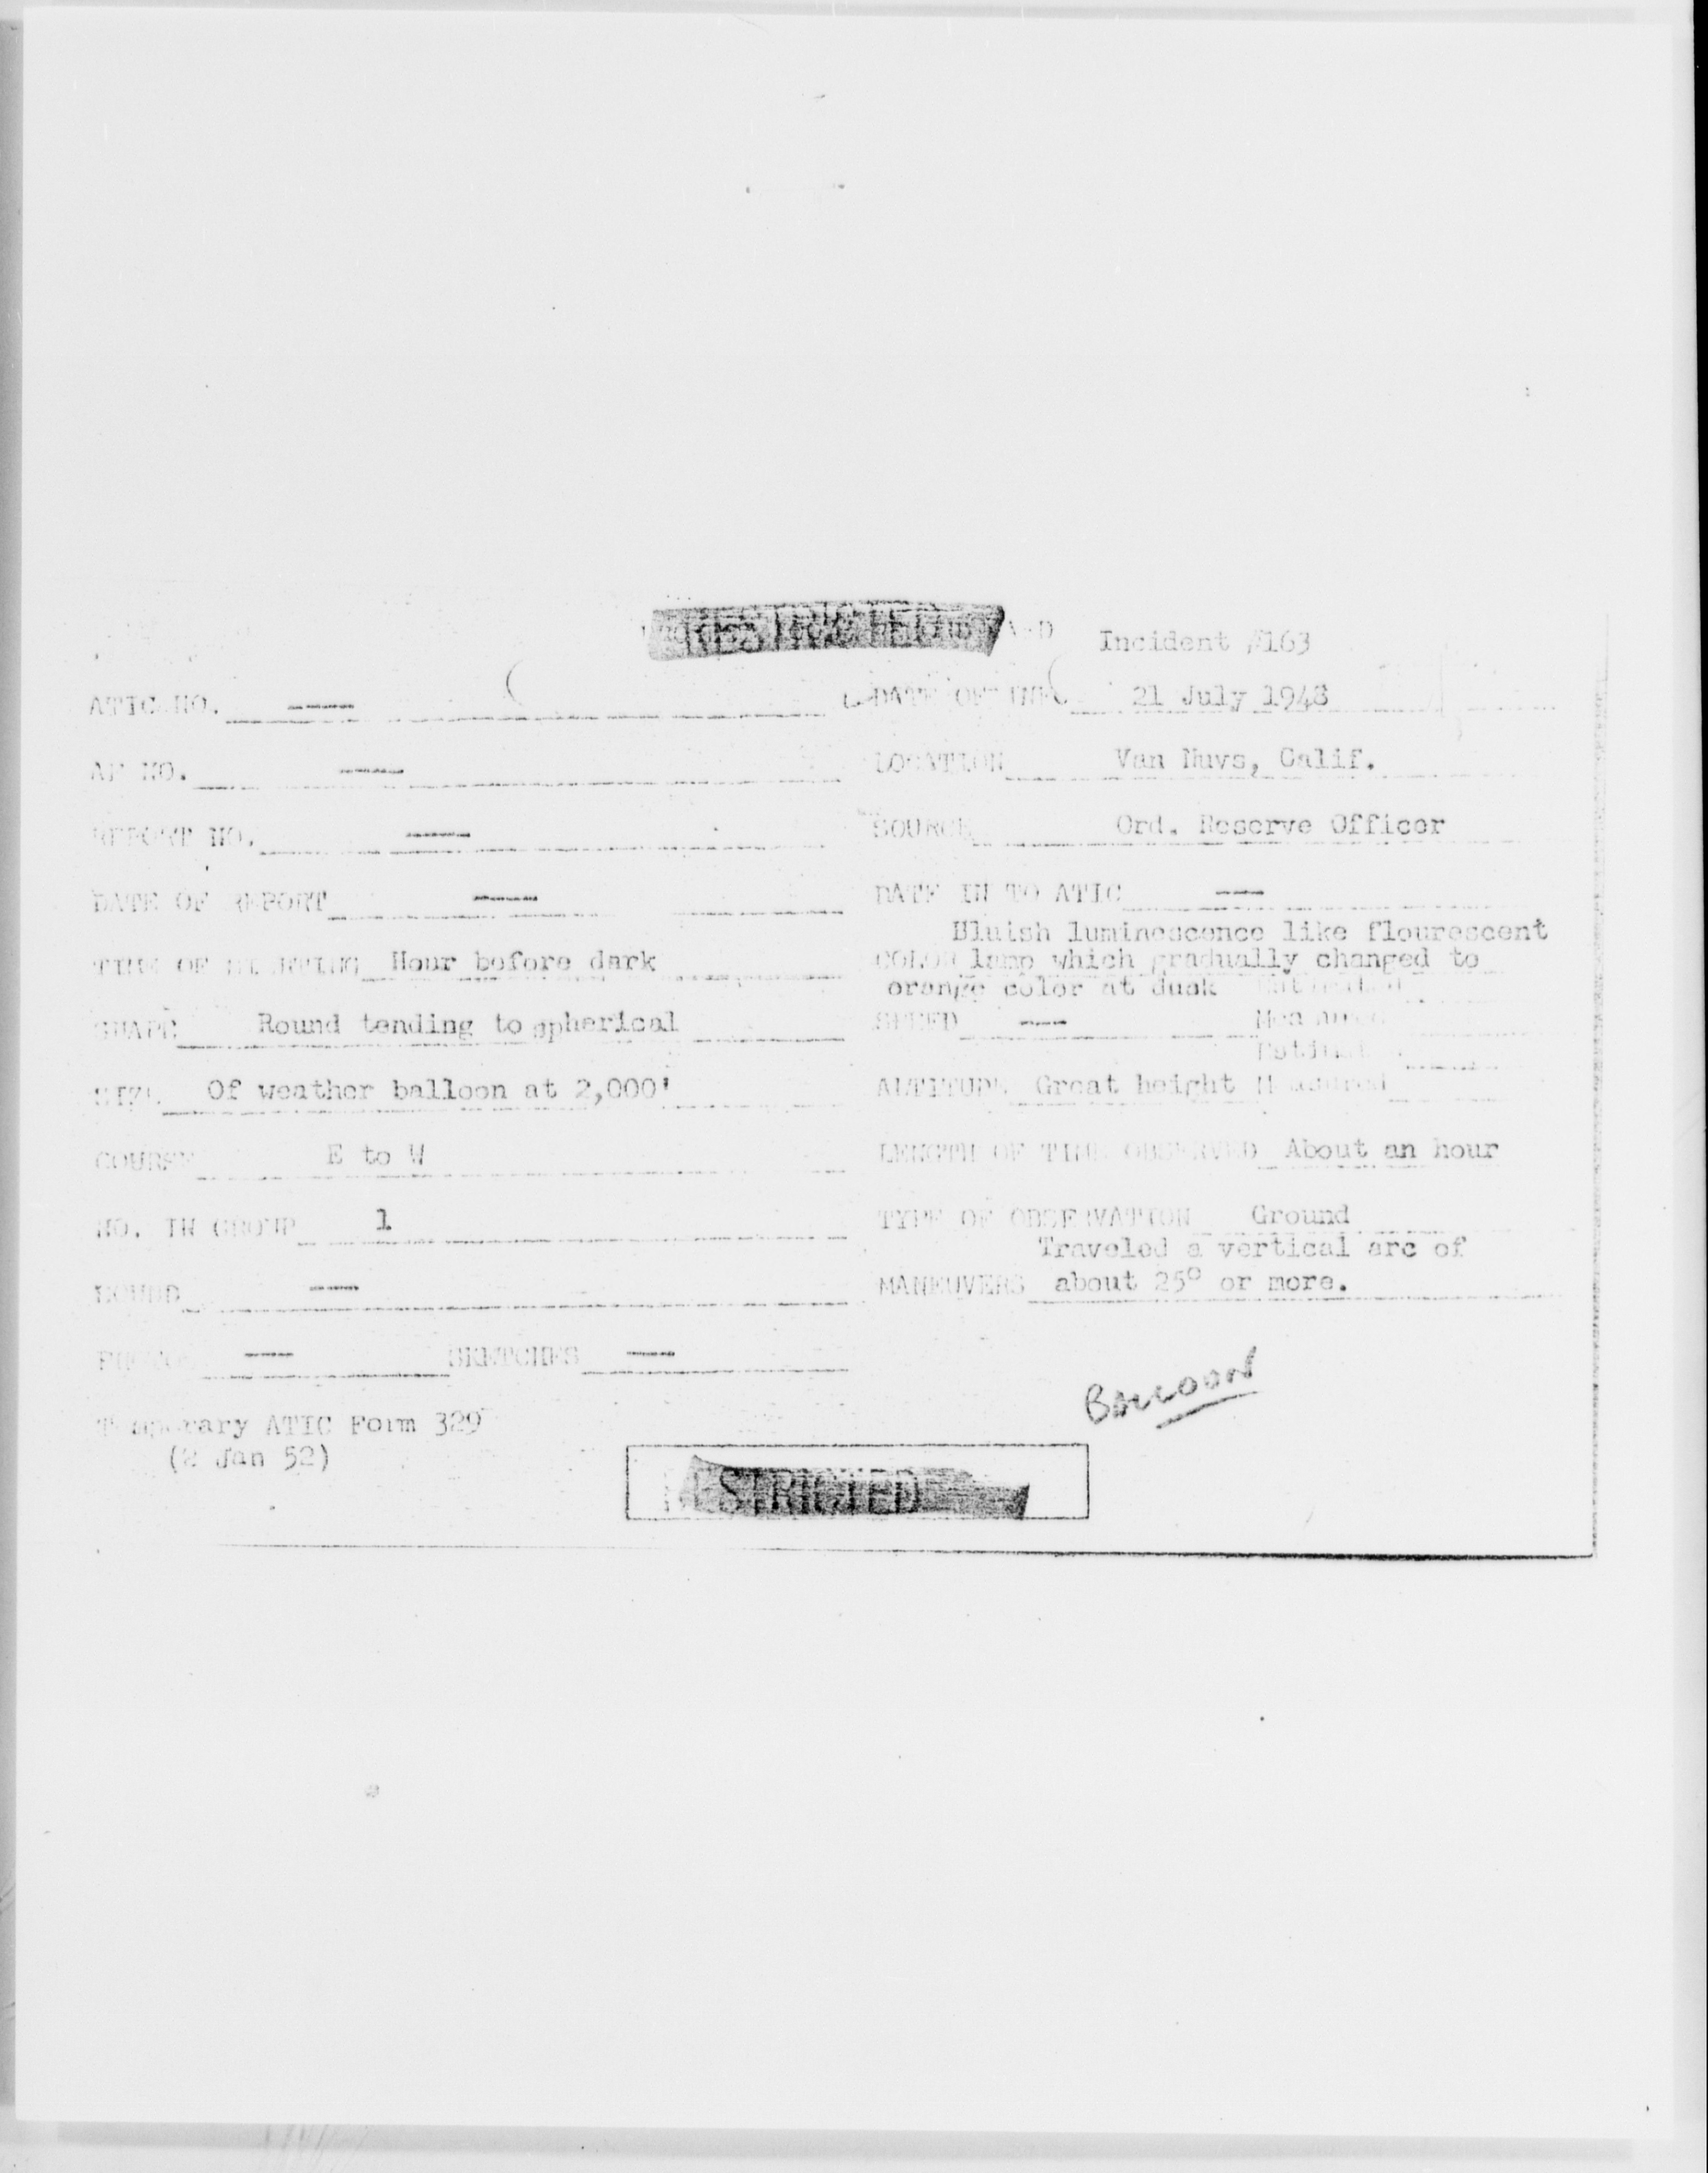 RESTRICTED
Incident #163
ATIC NO. ---- DATE OF INFO 21 July 1948
AF NO. ---- LOCATION Van Nuys, Calif.
REPORT NO. ---- SOURCE Ord. Reserve Officer
DATE OF REPORT ---- DATE IN TO ATIC ---
Bluish luminescence like flourescent
TIME OF SIGHTING Hour before dark COLOR lamp which gradually changed to
orange color at dusk Estimated
SHAPE Round tending to spherical SPEED --- Measured
Estimated
SIZE Of weather balloon at 2,000' ALTITUDE Great height Measured
COURSE E to W LENGTH OF TIME OBSERVED About an hour
NO. IN GROUP 1 TYPE OF OBSERVATION Ground
Traveled a vertical arc of
SOUND --- MANEUVERS about 25° or more.
PHOTOS --- SKETCHES ---
Balloon
Temporary ATIC Form 329
(2 Jan 52)
RESTRICTED